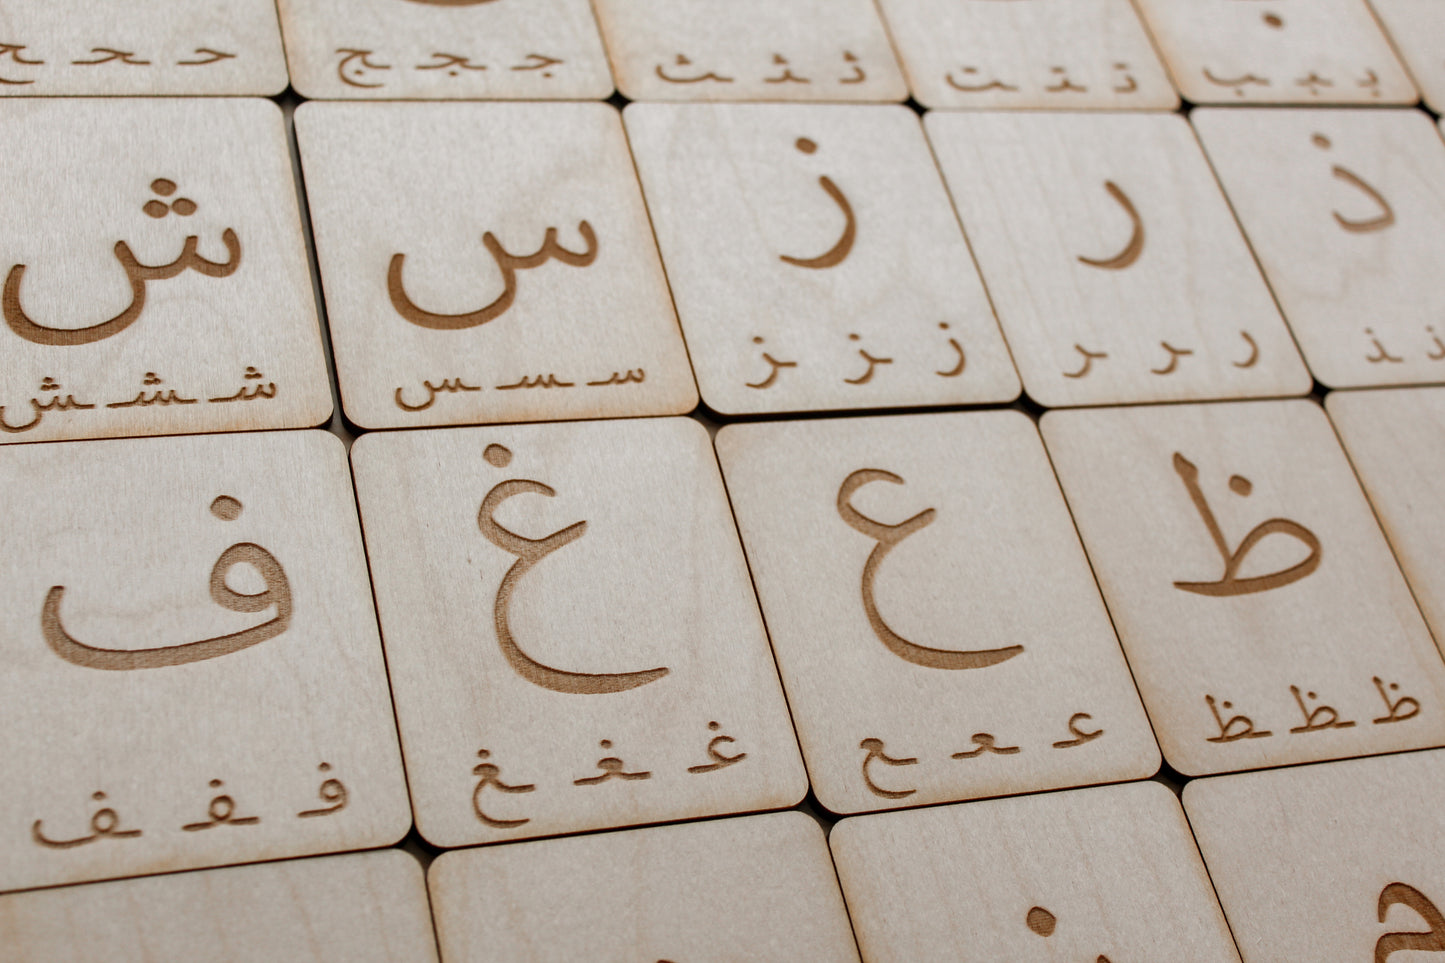 بـ ـبـ ـب تـ ـتـ ـت ثـ ـثـ ـث جـ ـجـ ـج حـ ـحـ ـح
ذ ر ز س ش
ذ ـذ ر ـر ـر ز ـز ـز سـ ـسـ ـس شـ ـشـ ـش
ظ ع غ ف
ظـ ـظـ ـظ عـ ـعـ ـع غـ ـغـ ـغ فـ ـفـ ـف